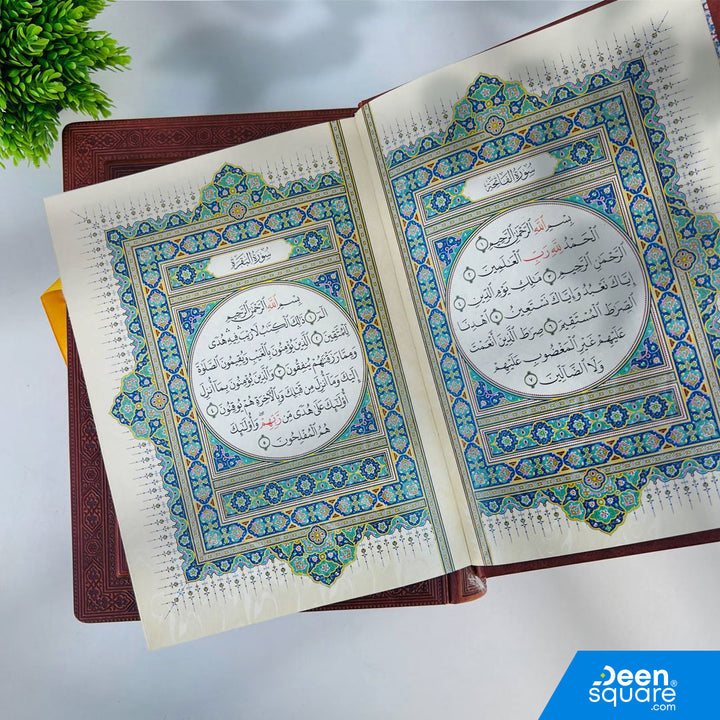 سُورَةُ الفَاتِحَة
بِسْمِ اللَّهِ الرَّحْمَٰنِ الرَّحِيمِ ١
الْحَمْدُ لِلَّهِ رَبِّ الْعَالَمِينَ ٢
الرَّحْمَٰنِ الرَّحِيمِ ٣ مَالِكِ يَوْمِ الدِّينِ ٤
إِيَّاكَ نَعْبُدُ وَإِيَّاكَ نَسْتَعِينُ ٥ اهْدِنَا
الصِّرَاطَ الْمُسْتَقِيمَ ٦ صِرَاطَ الَّذِينَ أَنْعَمْتَ
عَلَيْهِمْ غَيْرِ الْمَغْضُوبِ عَلَيْهِمْ
وَلَا الضَّالِّينَ ٧
سُورَةُ البَقَرَة
بِسْمِ اللَّهِ الرَّحْمَٰنِ الرَّحِيمِ
الم ١ ذَٰلِكَ الْكِتَابُ لَا رَيْبَ فِيهِ هُدًى
لِلْمُتَّقِينَ ٢ الَّذِينَ يُؤْمِنُونَ بِالْغَيْبِ وَيُقِيمُونَ الصَّلَاةَ
وَمِمَّا رَزَقْنَاهُمْ يُنْفِقُونَ ٣ وَالَّذِينَ يُؤْمِنُونَ بِمَا أُنْزِلَ
إِلَيْكَ وَمَا أُنْزِلَ مِنْ قَبْلِكَ وَبِالْآخِرَةِ هُمْ يُوقِنُونَ ٤
أُولَٰئِكَ عَلَىٰ هُدًى مِنْ رَبِّهِمْ وَأُولَٰئِكَ
هُمُ الْمُفْلِحُونَ ٥
Deen
square®
.com